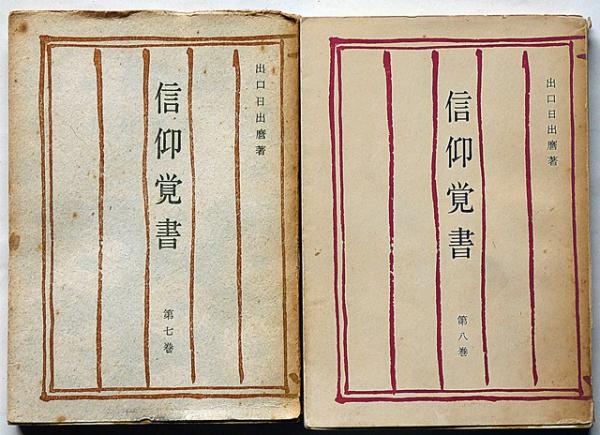 出口日出麿著
信仰覚書
第七巻
出口日出麿著
信仰覚書
第八巻